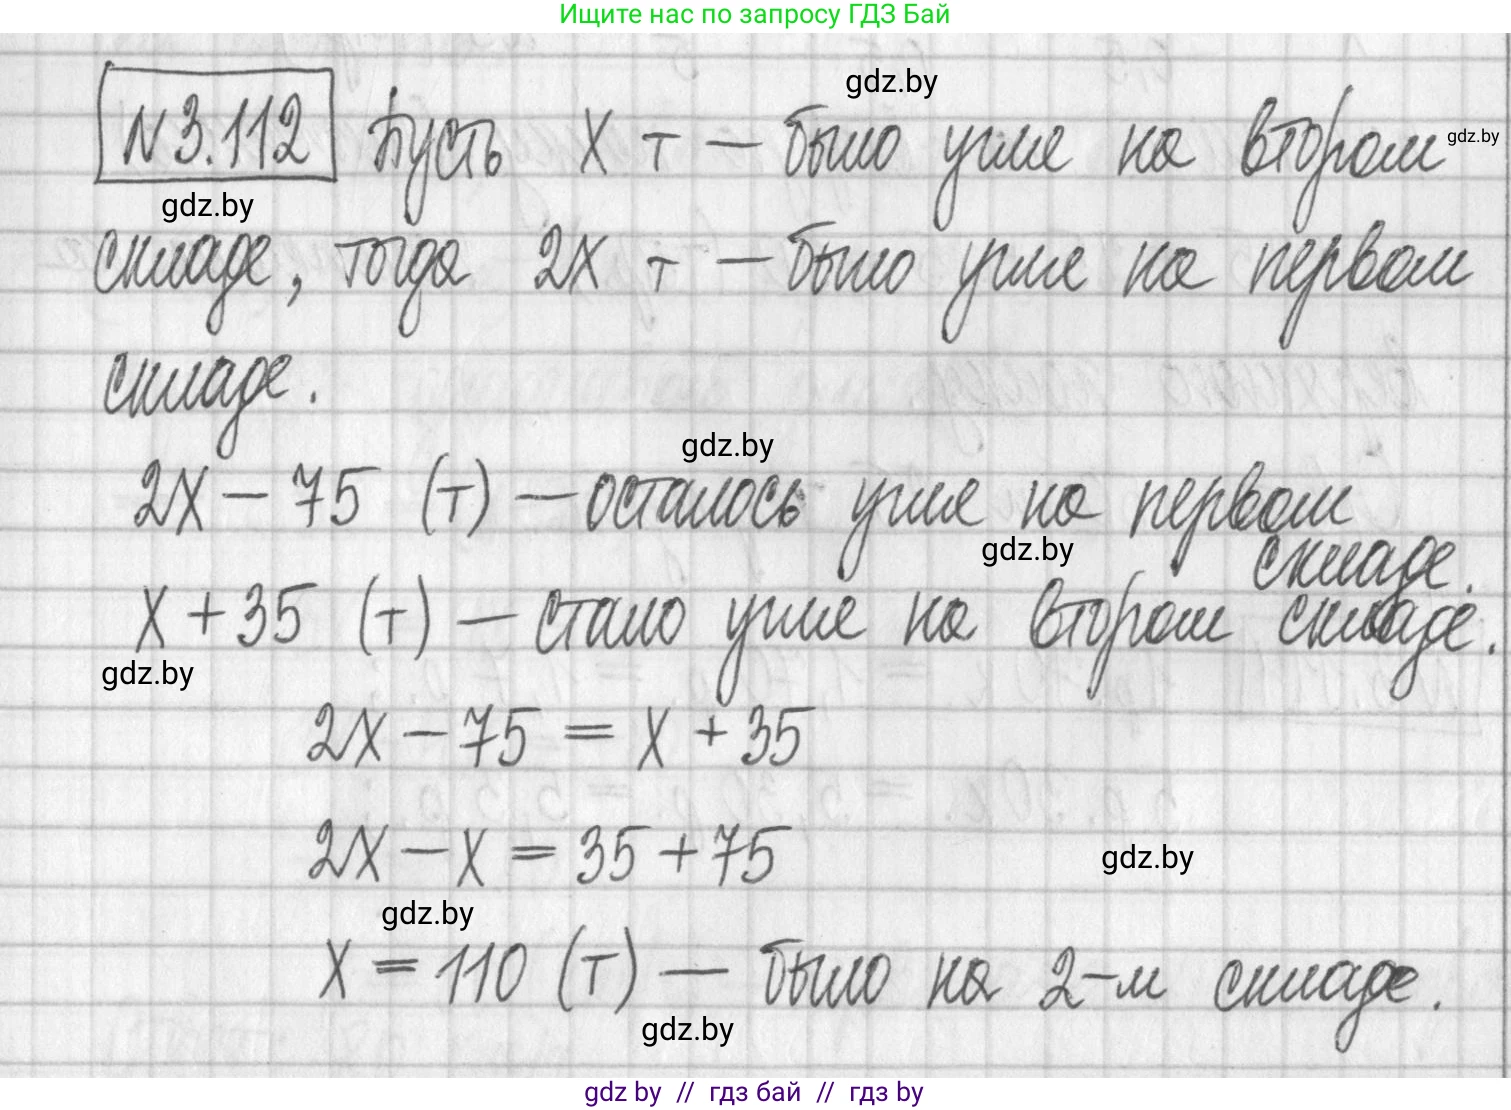 Ищите нас по запросу ГДЗ Бай
gdz.by
№3.112 Пусть х т — было угля на втором gdz.by
gdz.by
складе, тогда 2х т — было угля на первом
складе.
gdz.by
2х − 75 (т) — осталось угля на первом
gdz.by складе.
х + 35 (т) — стало угля на втором складе.
gdz.by
2х − 75 = х + 35
2х − х = 35 + 75
gdz.by
gdz.by
х = 110 (т) — было на 2-м складе.
gdz.by
gdz by // гдз бай // гдз by